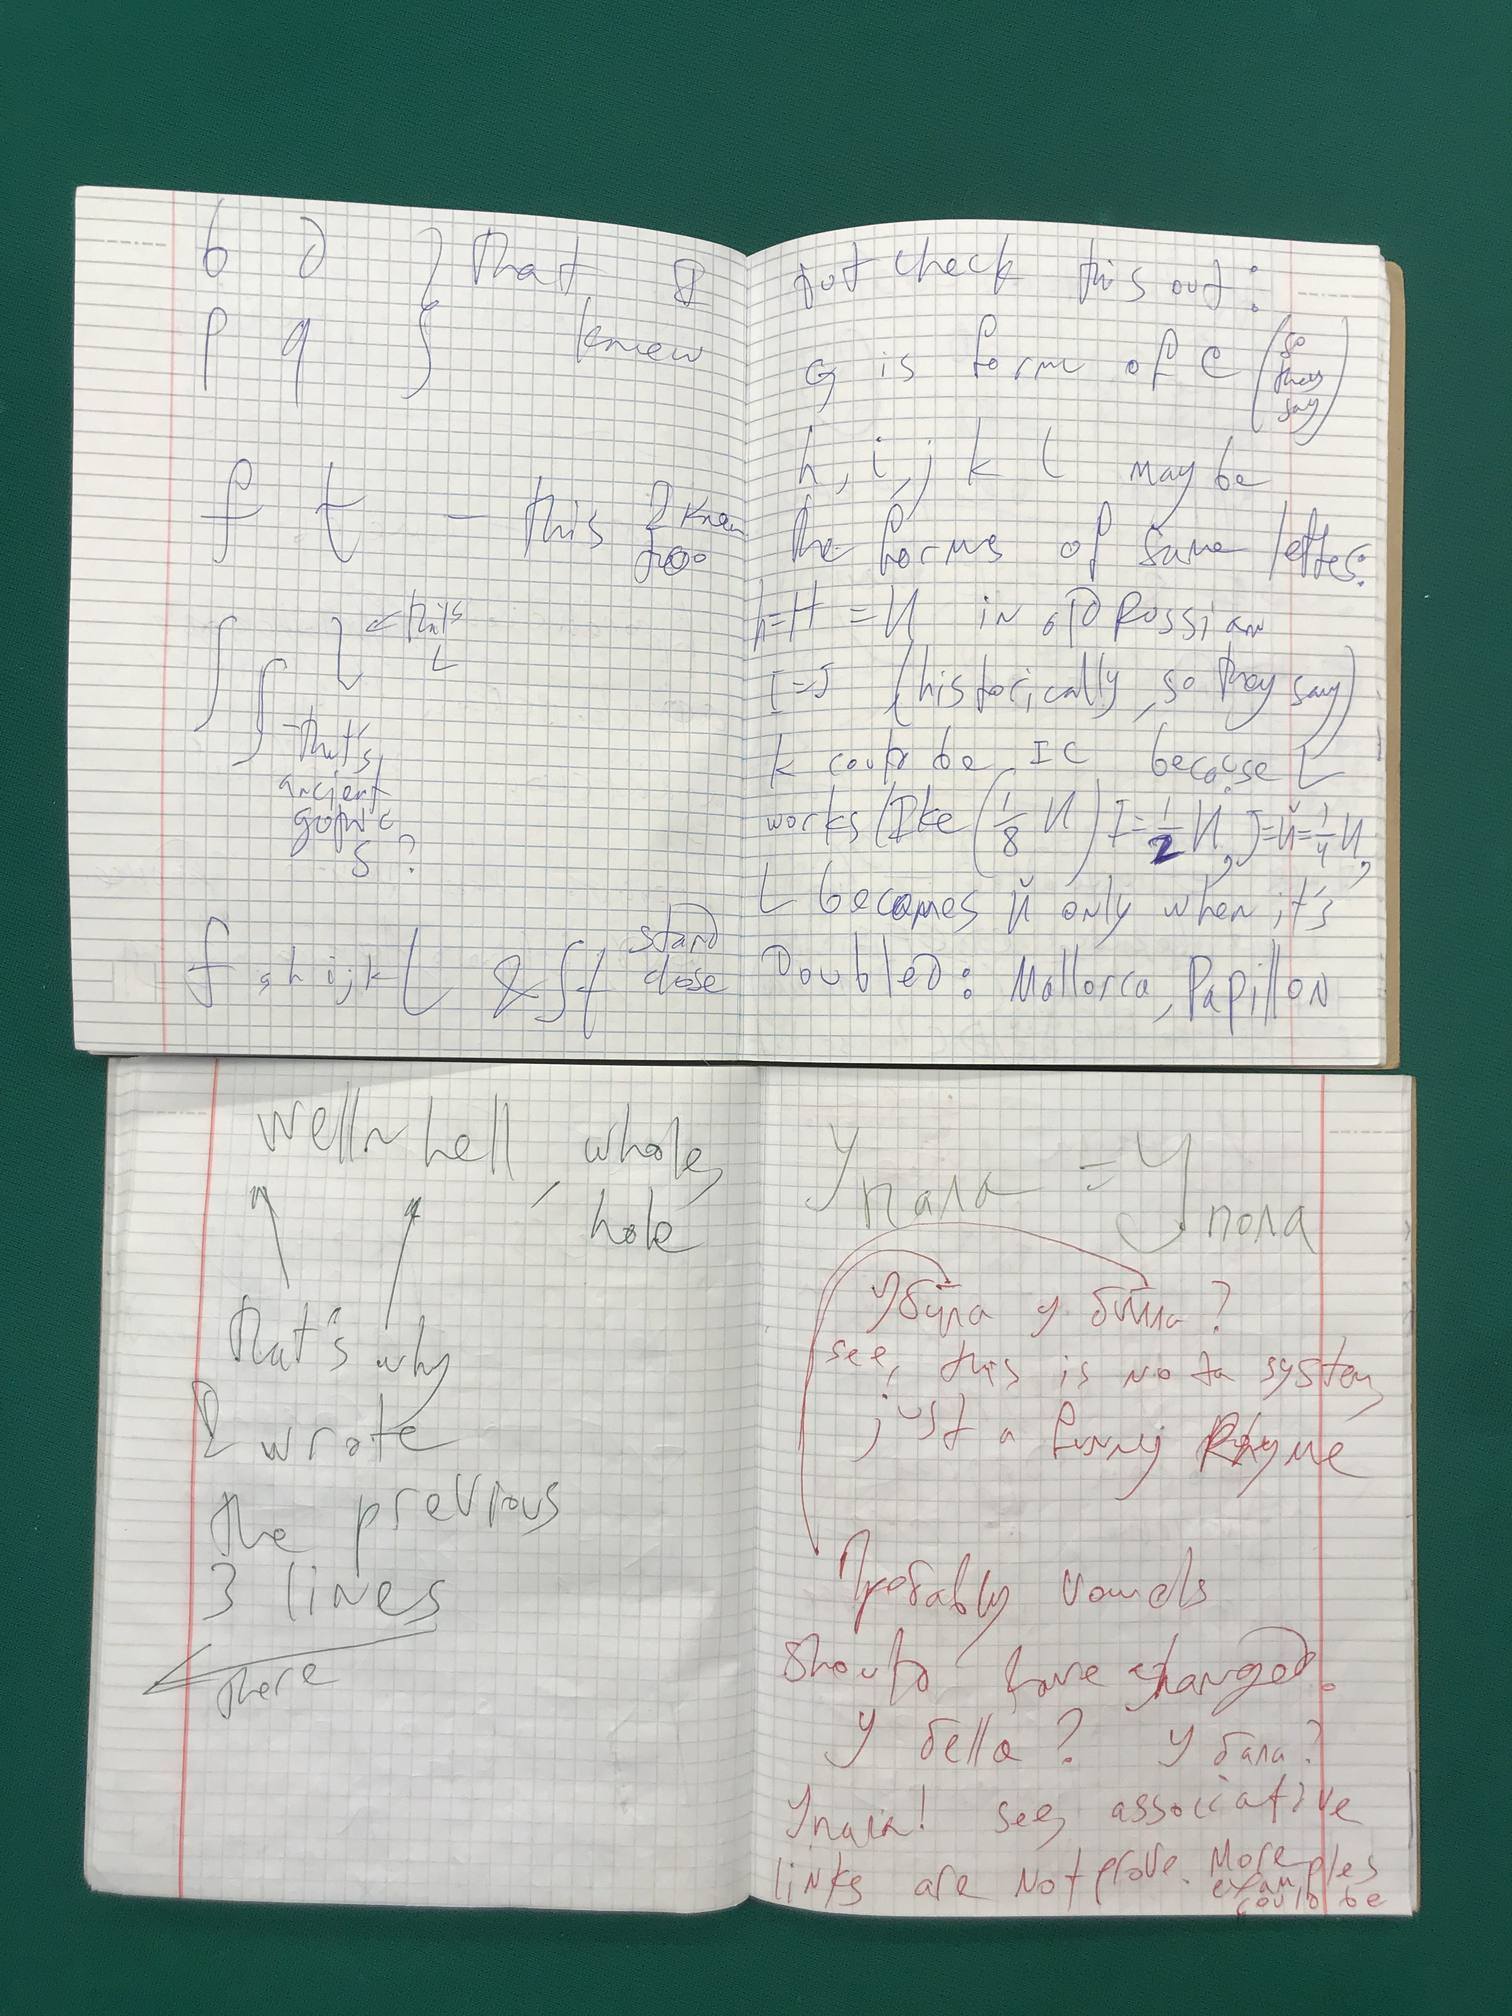 b d } that I
p q } knew
f t - this I knew
too
∫ ∫ ⟅ ← this
L
that's
ancient
gothic
S ?
f g h i j k L & ∫ f stand
close
but check this out:
G is form of C (so
they
say)
h, i, j k l may be
the forms of same letter:
h=H =И in old Russian
I=J (historically, so they say)
k could be IC because L
works like (1/8 И) I=1/2 И, J=Й=1/4 И,
L becomes Й only when it's
Doubled: Mallorca, Papillon
well~hell, whole,
hole
that's why
I wrote
the previous
3 lines
there
Упала = У пола
Убила у била?
see, this is not a system
just a funny Rhyme
Probably vowels
should have changed.
У белла? У бала?
Упала! see, associative
links are not prove. More
examples
could be